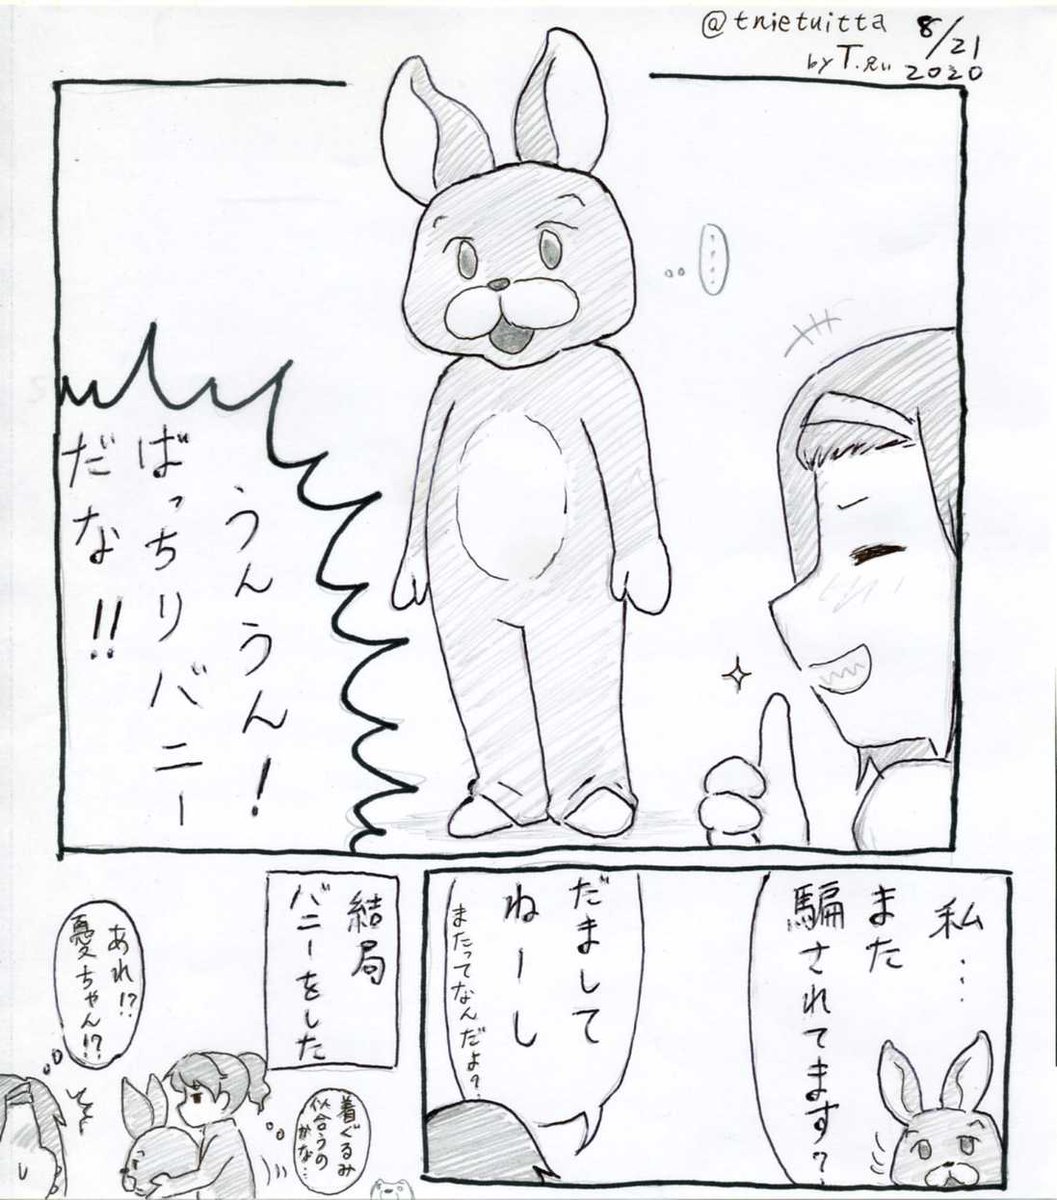 @tnietuitta 8/21
by T.Rui 2020
‥‥
うんうん!
ばっちりバニー
だな!!
私‥‥
また
騙されてます?
だまして
ねーし
またってなんだよ?
結局
バニーをした
着ぐるみ
似合うの
かな…
あれ!?
憂ちゃん!?